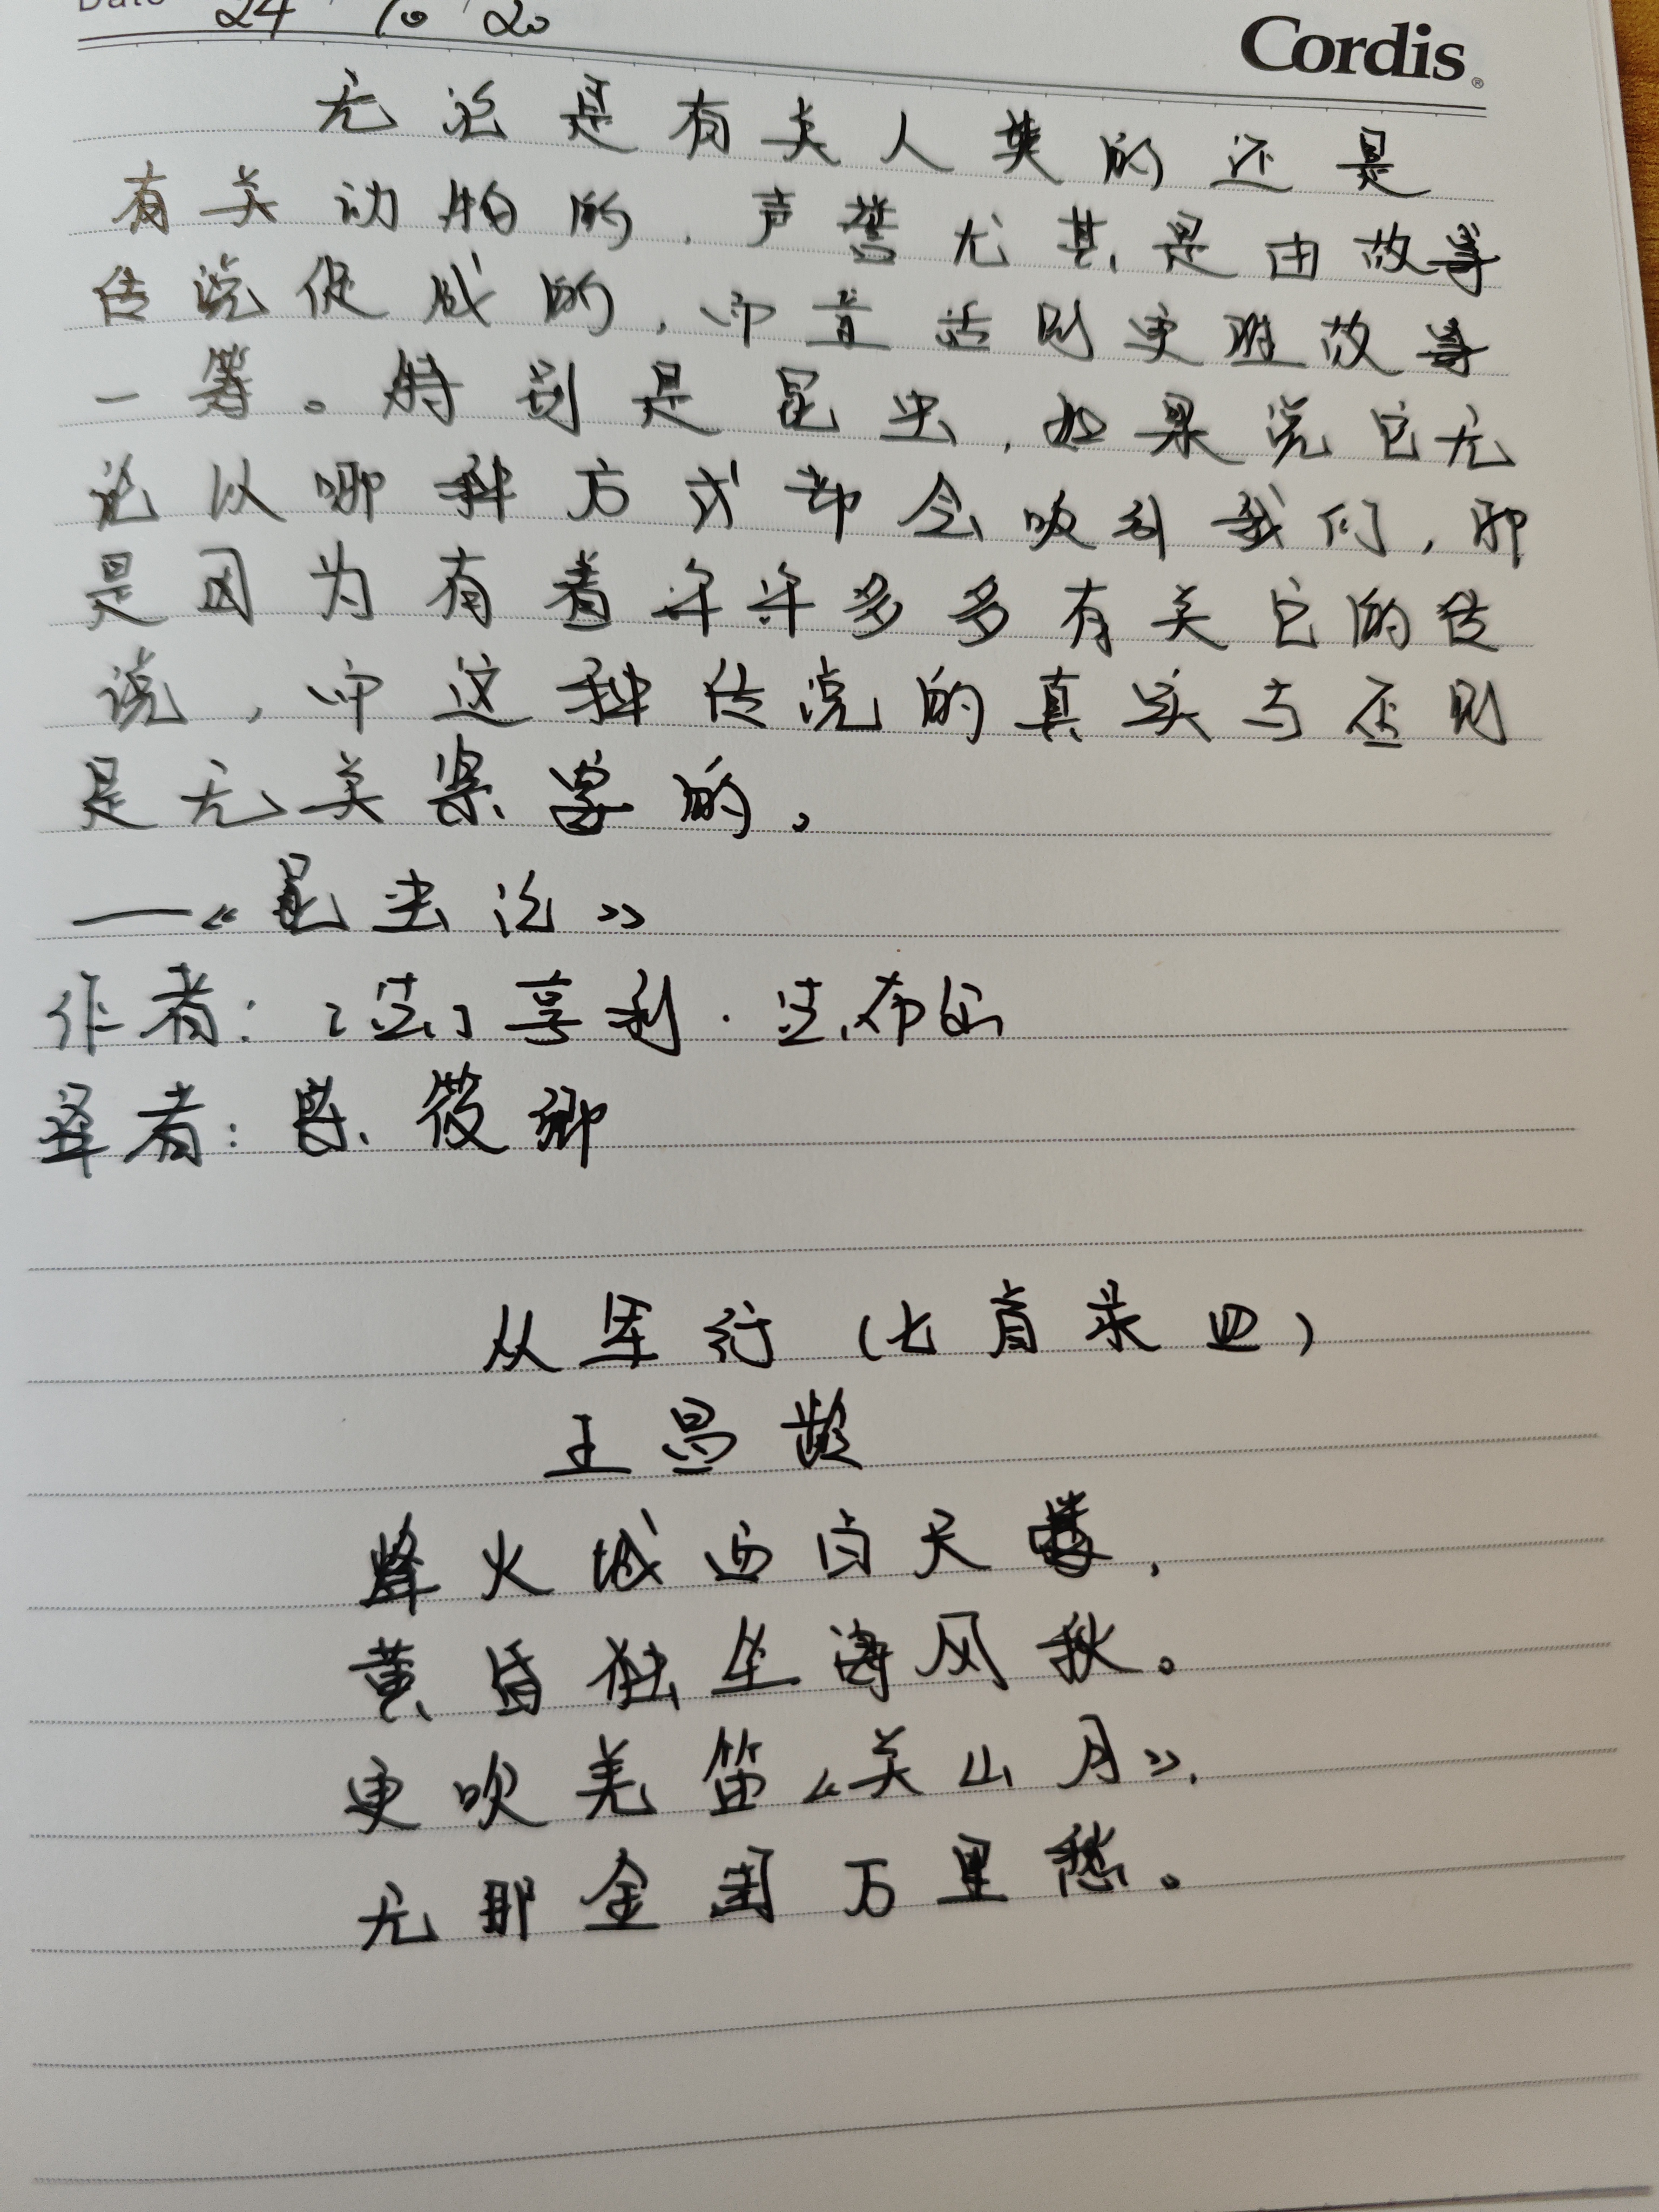 Date 24 / 10 / 20
Cordis®
无论是有关人类的还是
有关动物的，声誉尤其是由故事
传说促成的，而童话则更胜故事
一筹。特别是昆虫，如果说它无
论从哪种方式都会吸引我们，那
是因为有着许许多多有关它的传
说，而这种传说的真实与否则
是无关紧要的。
——《昆虫记》
作者：[法]亨利·法布尔
译者：陈筱卿
从军行（七首录四）
王昌龄
烽火城西百尺楼，
黄昏独坐海风秋。
更吹羌笛《关山月》，
无那金闺万里愁。